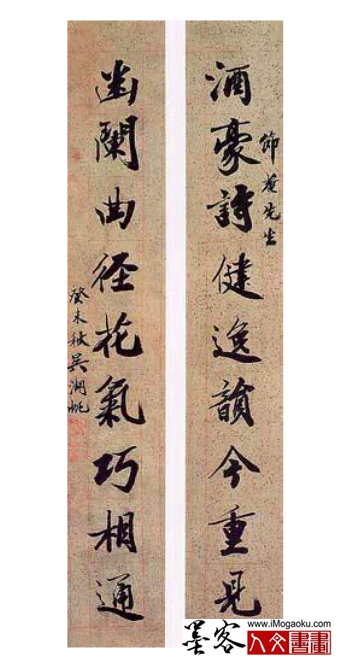 酒豪詩健逸韻今重見
節庵先生
幽蘭曲径花氣巧相通
癸未秋吴湖帆
www.iMogaoku.com
墨客
人文書畫